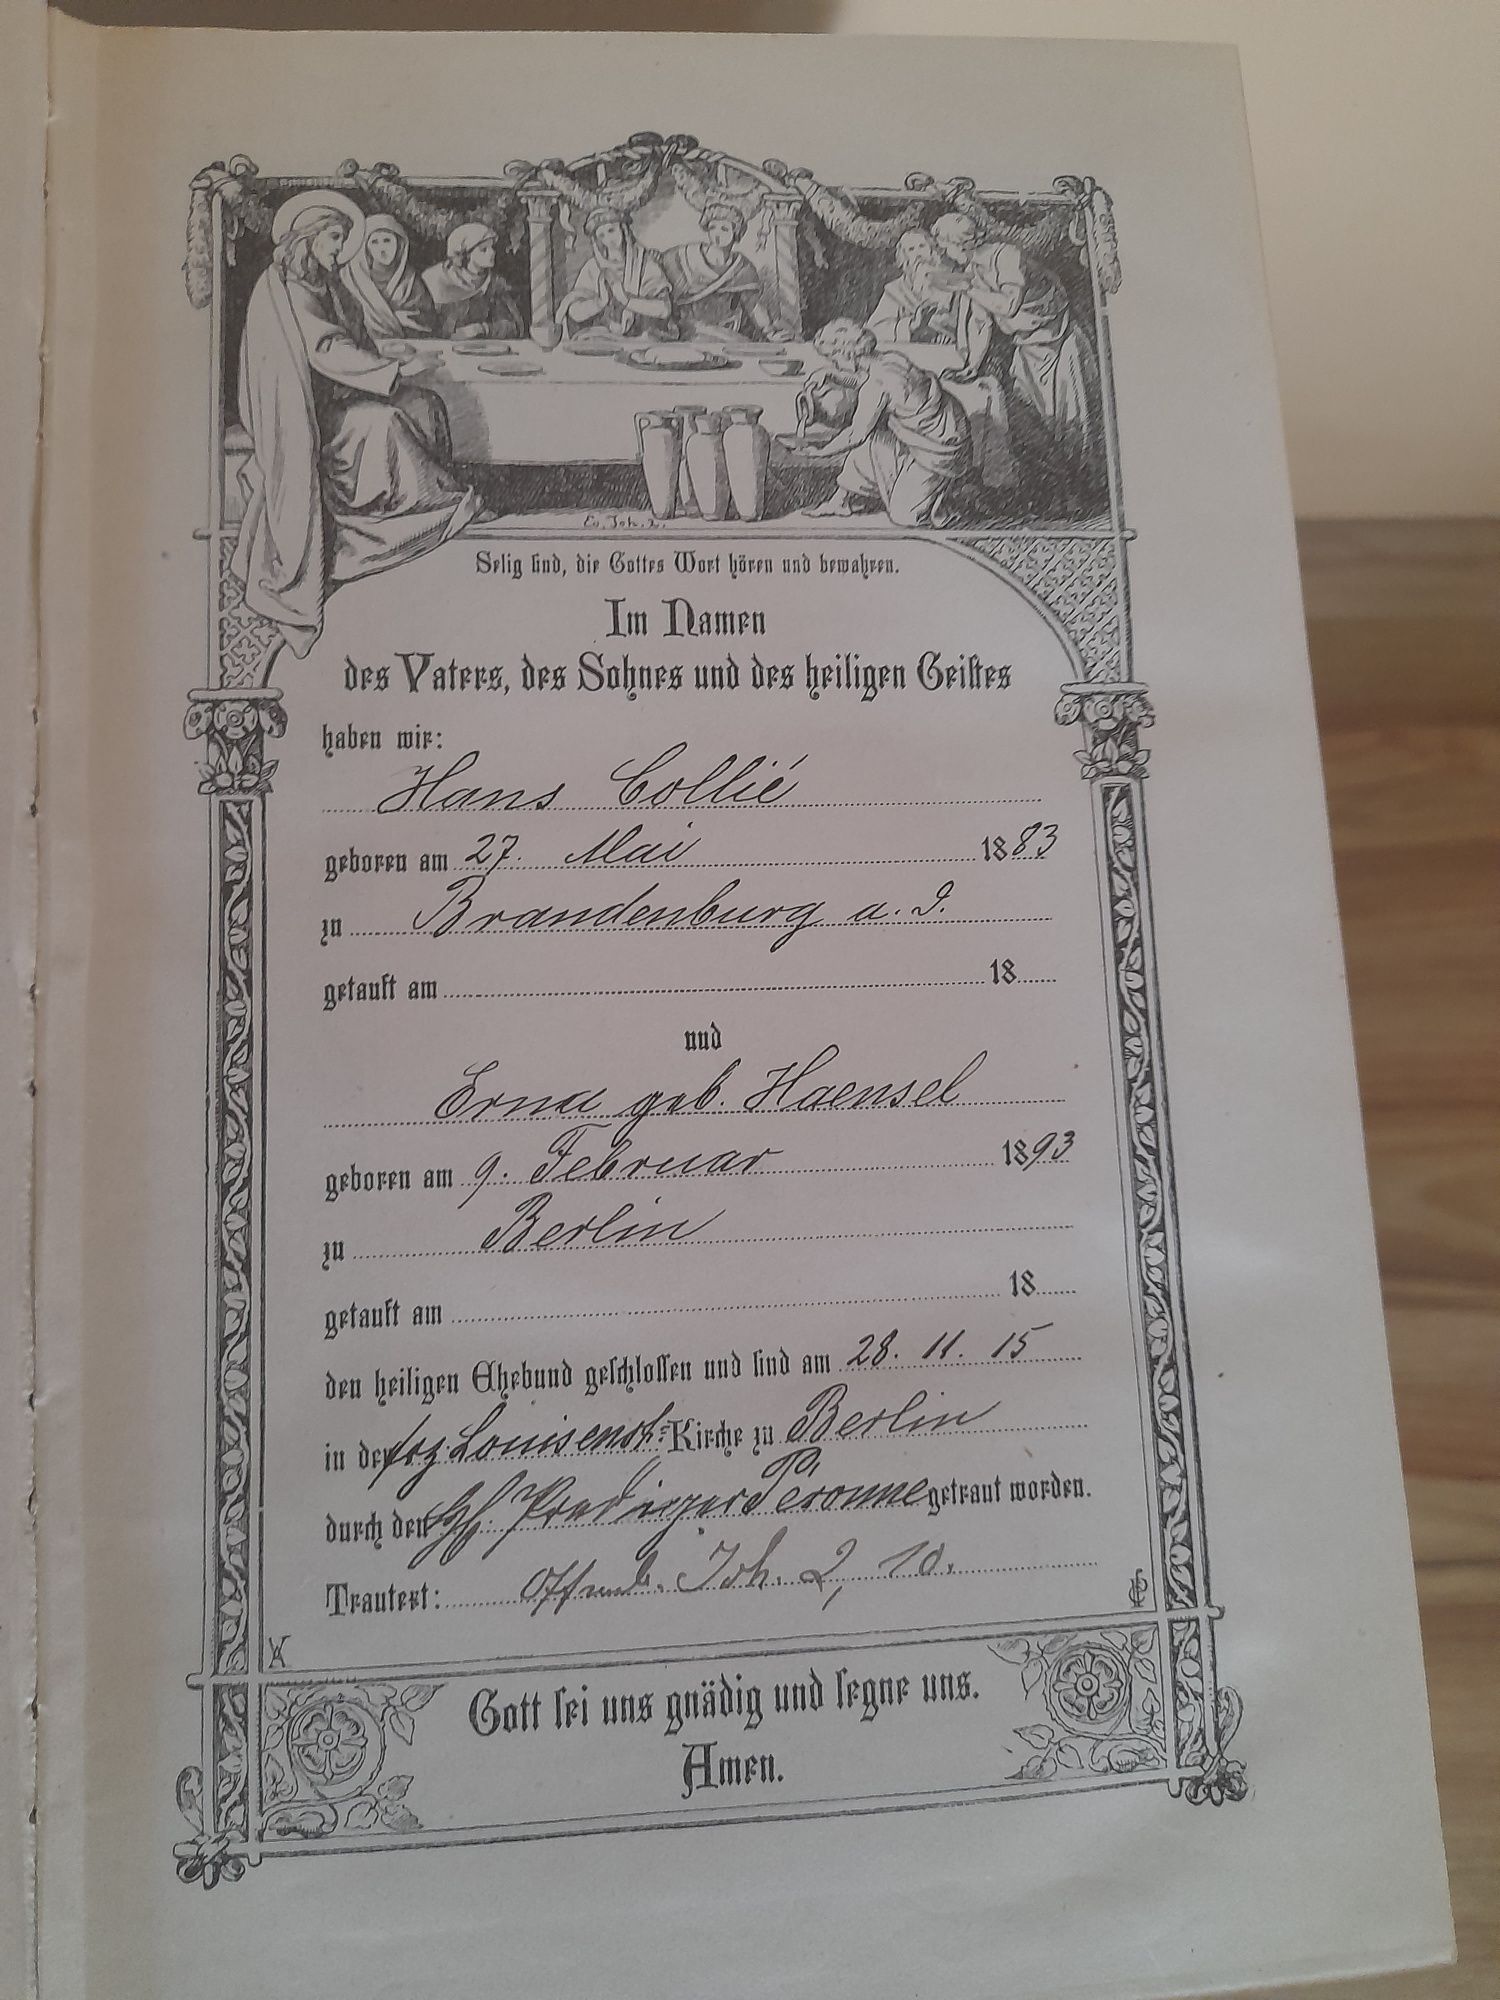 Ev. Joh. 2.
Selig sind, die Gottes Wort hören und bewahren.
Im Namen
des Vaters, des Sohnes und des heiligen Geistes
haben wir:
Hans Collié
geboren am 27. Mai 1883
zu Brandenburg a. d.
getauft am 18
und
Erna geb. Haensel
geboren am 9. Februar 1893
zu Berlin
getauft am 18
den heiligen Ehebund geschlossen und sind am 28. 11. 15
in der frz Louisenst.-Kirche zu Berlin
durch den Prediger Peronne getraut worden.
Trautext: Offenb. Joh. 2, 10.
Gott sei uns gnädig und segne uns.
Amen.